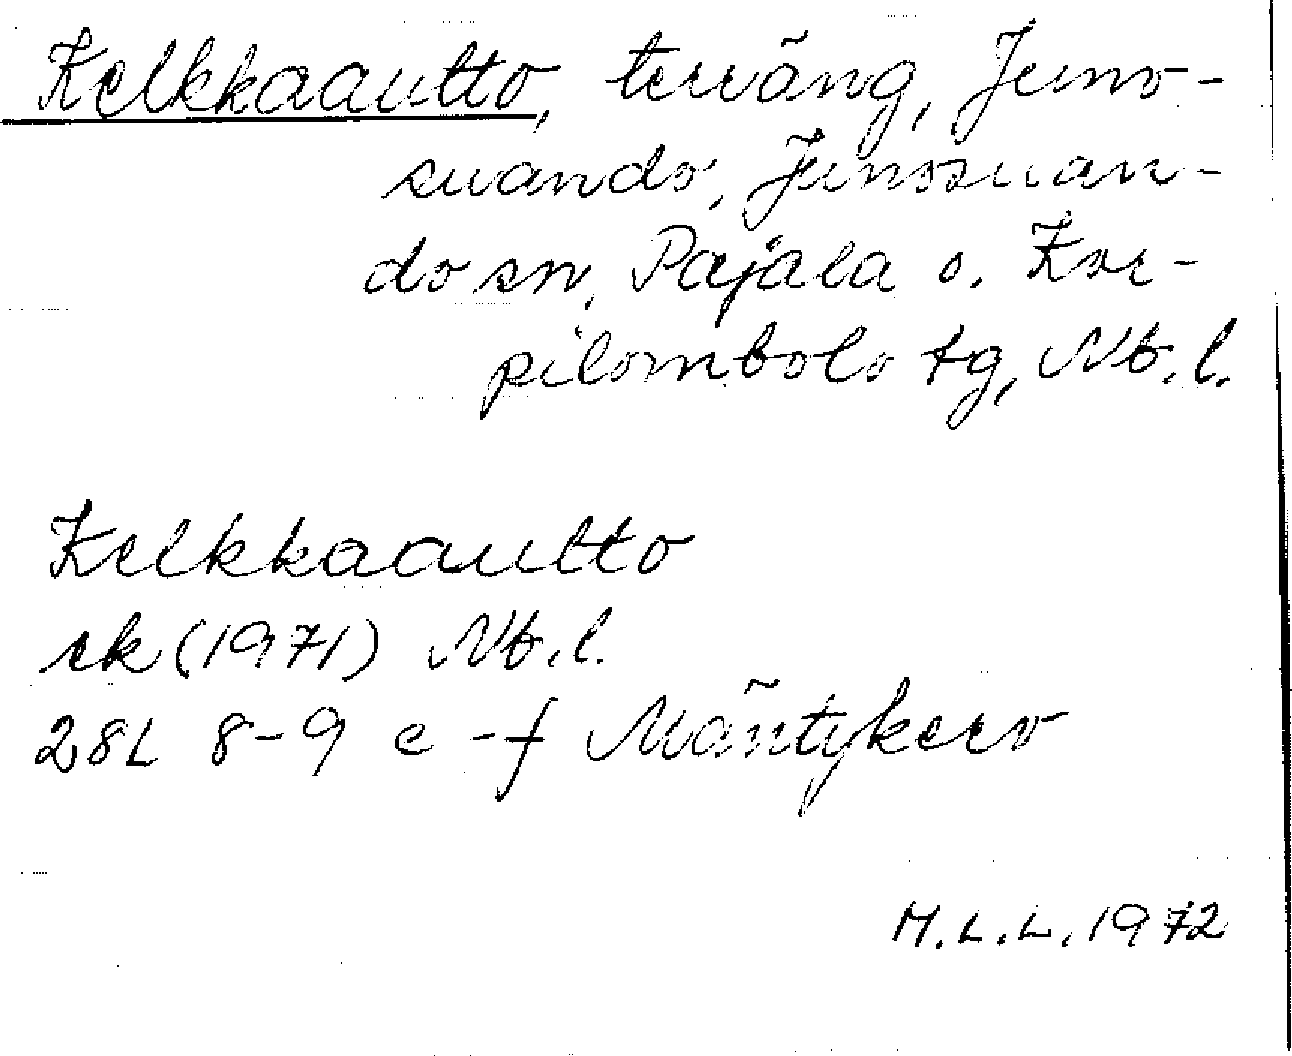 Kelkkaautto, terräng, Juno-
suando, Junosuan-
do sn, Pajala o. Kor-
pilombolo tg, Nb.l.
Kelkkaautto
ek (1971) Nb.l.
28L 8-9 e-f Mäntykero
M.L.L. 1972